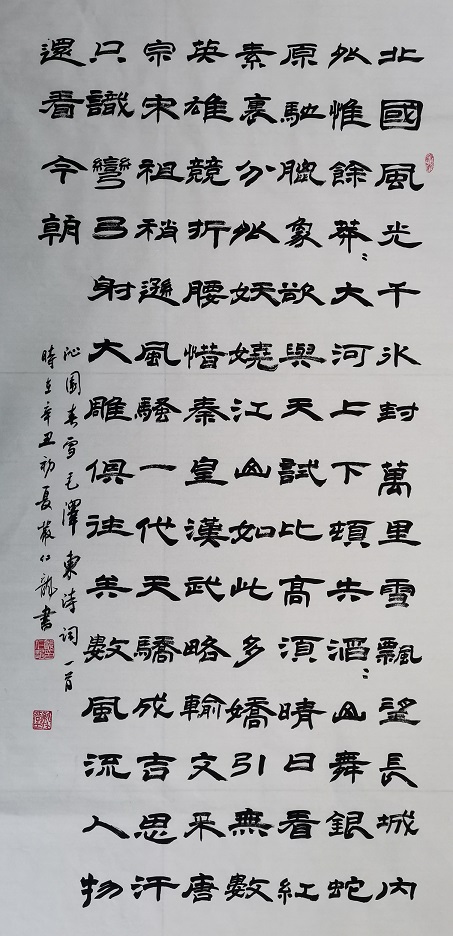 北國風光千氷封萬里雪飄望長城內
外惟餘莽〻大河上下頓失滔〻山舞銀蛇
原馳臘象欲與天試比高須晴日看紅
素裹分外妖嬈江山如此多嬌引無數
英雄競折腰惜秦皇漢武略輸文采唐
宗宋祖稍遜風騷一代天驕成吉思汗
只識彎弓射大雕俱往矣數風流人物
還看今朝
沁園春雪毛澤東诗词一首
時在辛丑初夏仁龍書